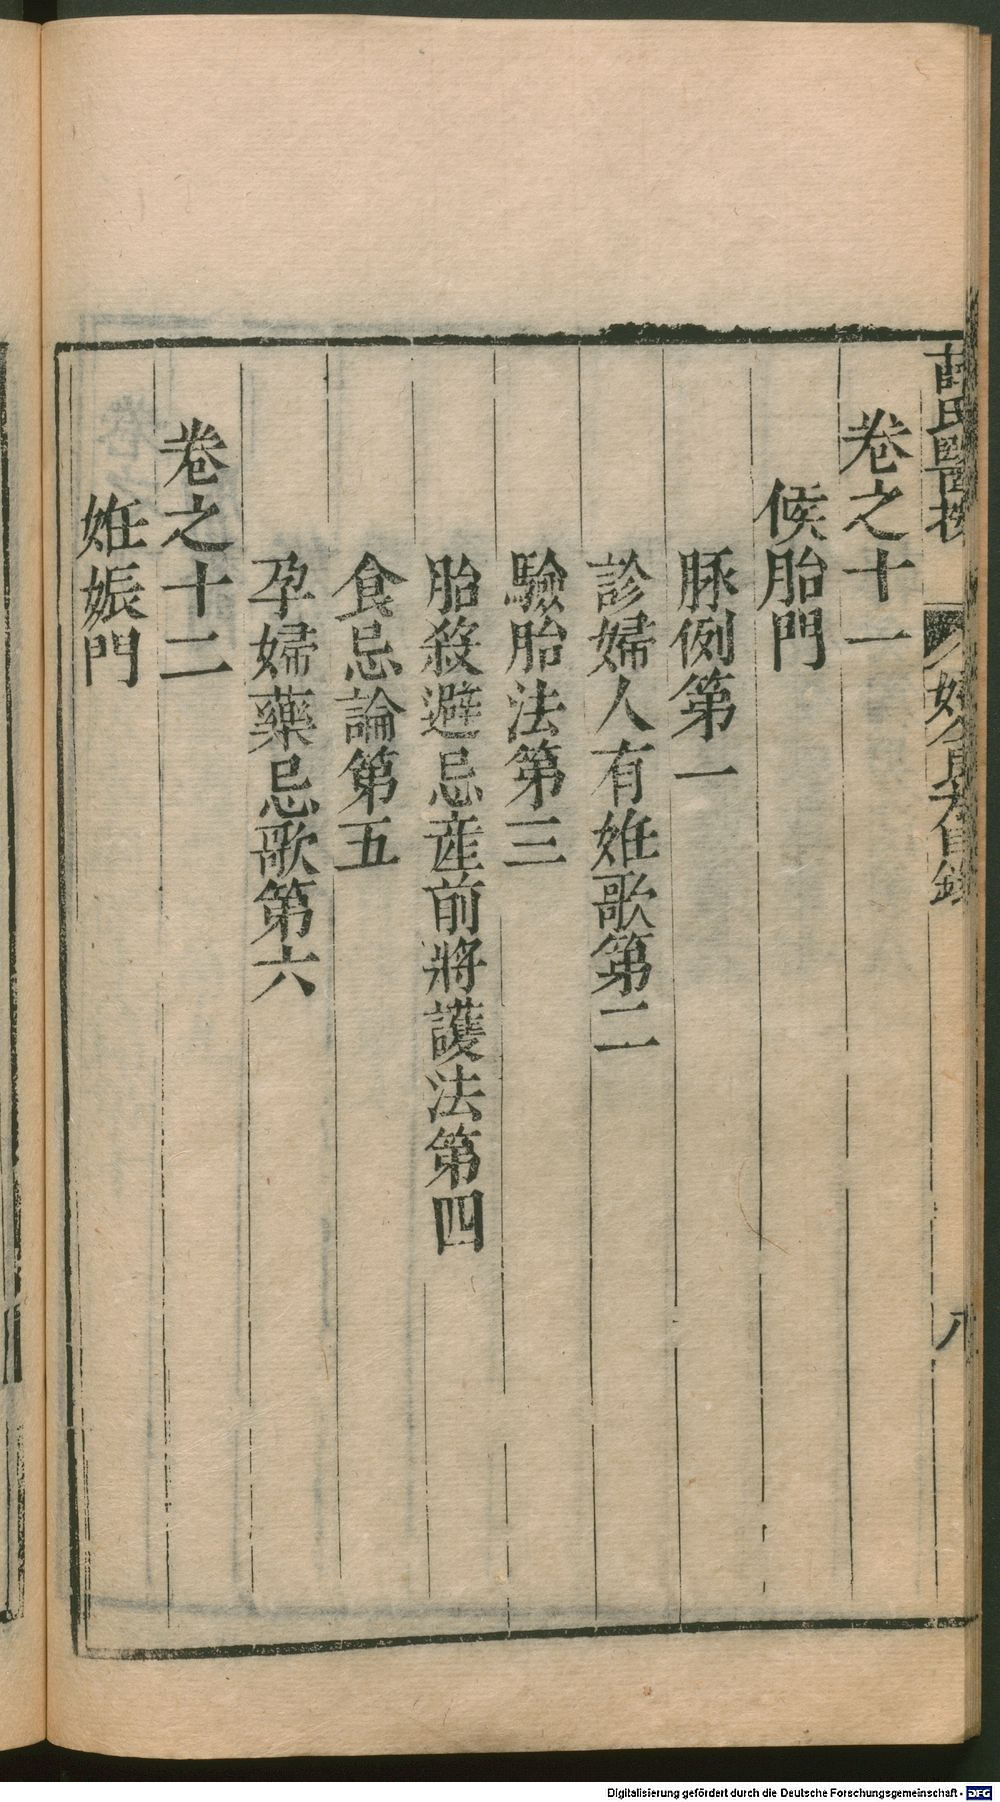 薛氏醫按
婦人良方目錄
八
卷之十一
候胎門
脉例第一
診婦人有姙歌第二
驗胎法第三
胎殺避忌産前將護法第四
食忌論第五
孕婦藥忌歌第六
卷之十二
姙娠門
Digitalisierung gefördert durch die Deutsche Forschungsgemeinschaft - DFG